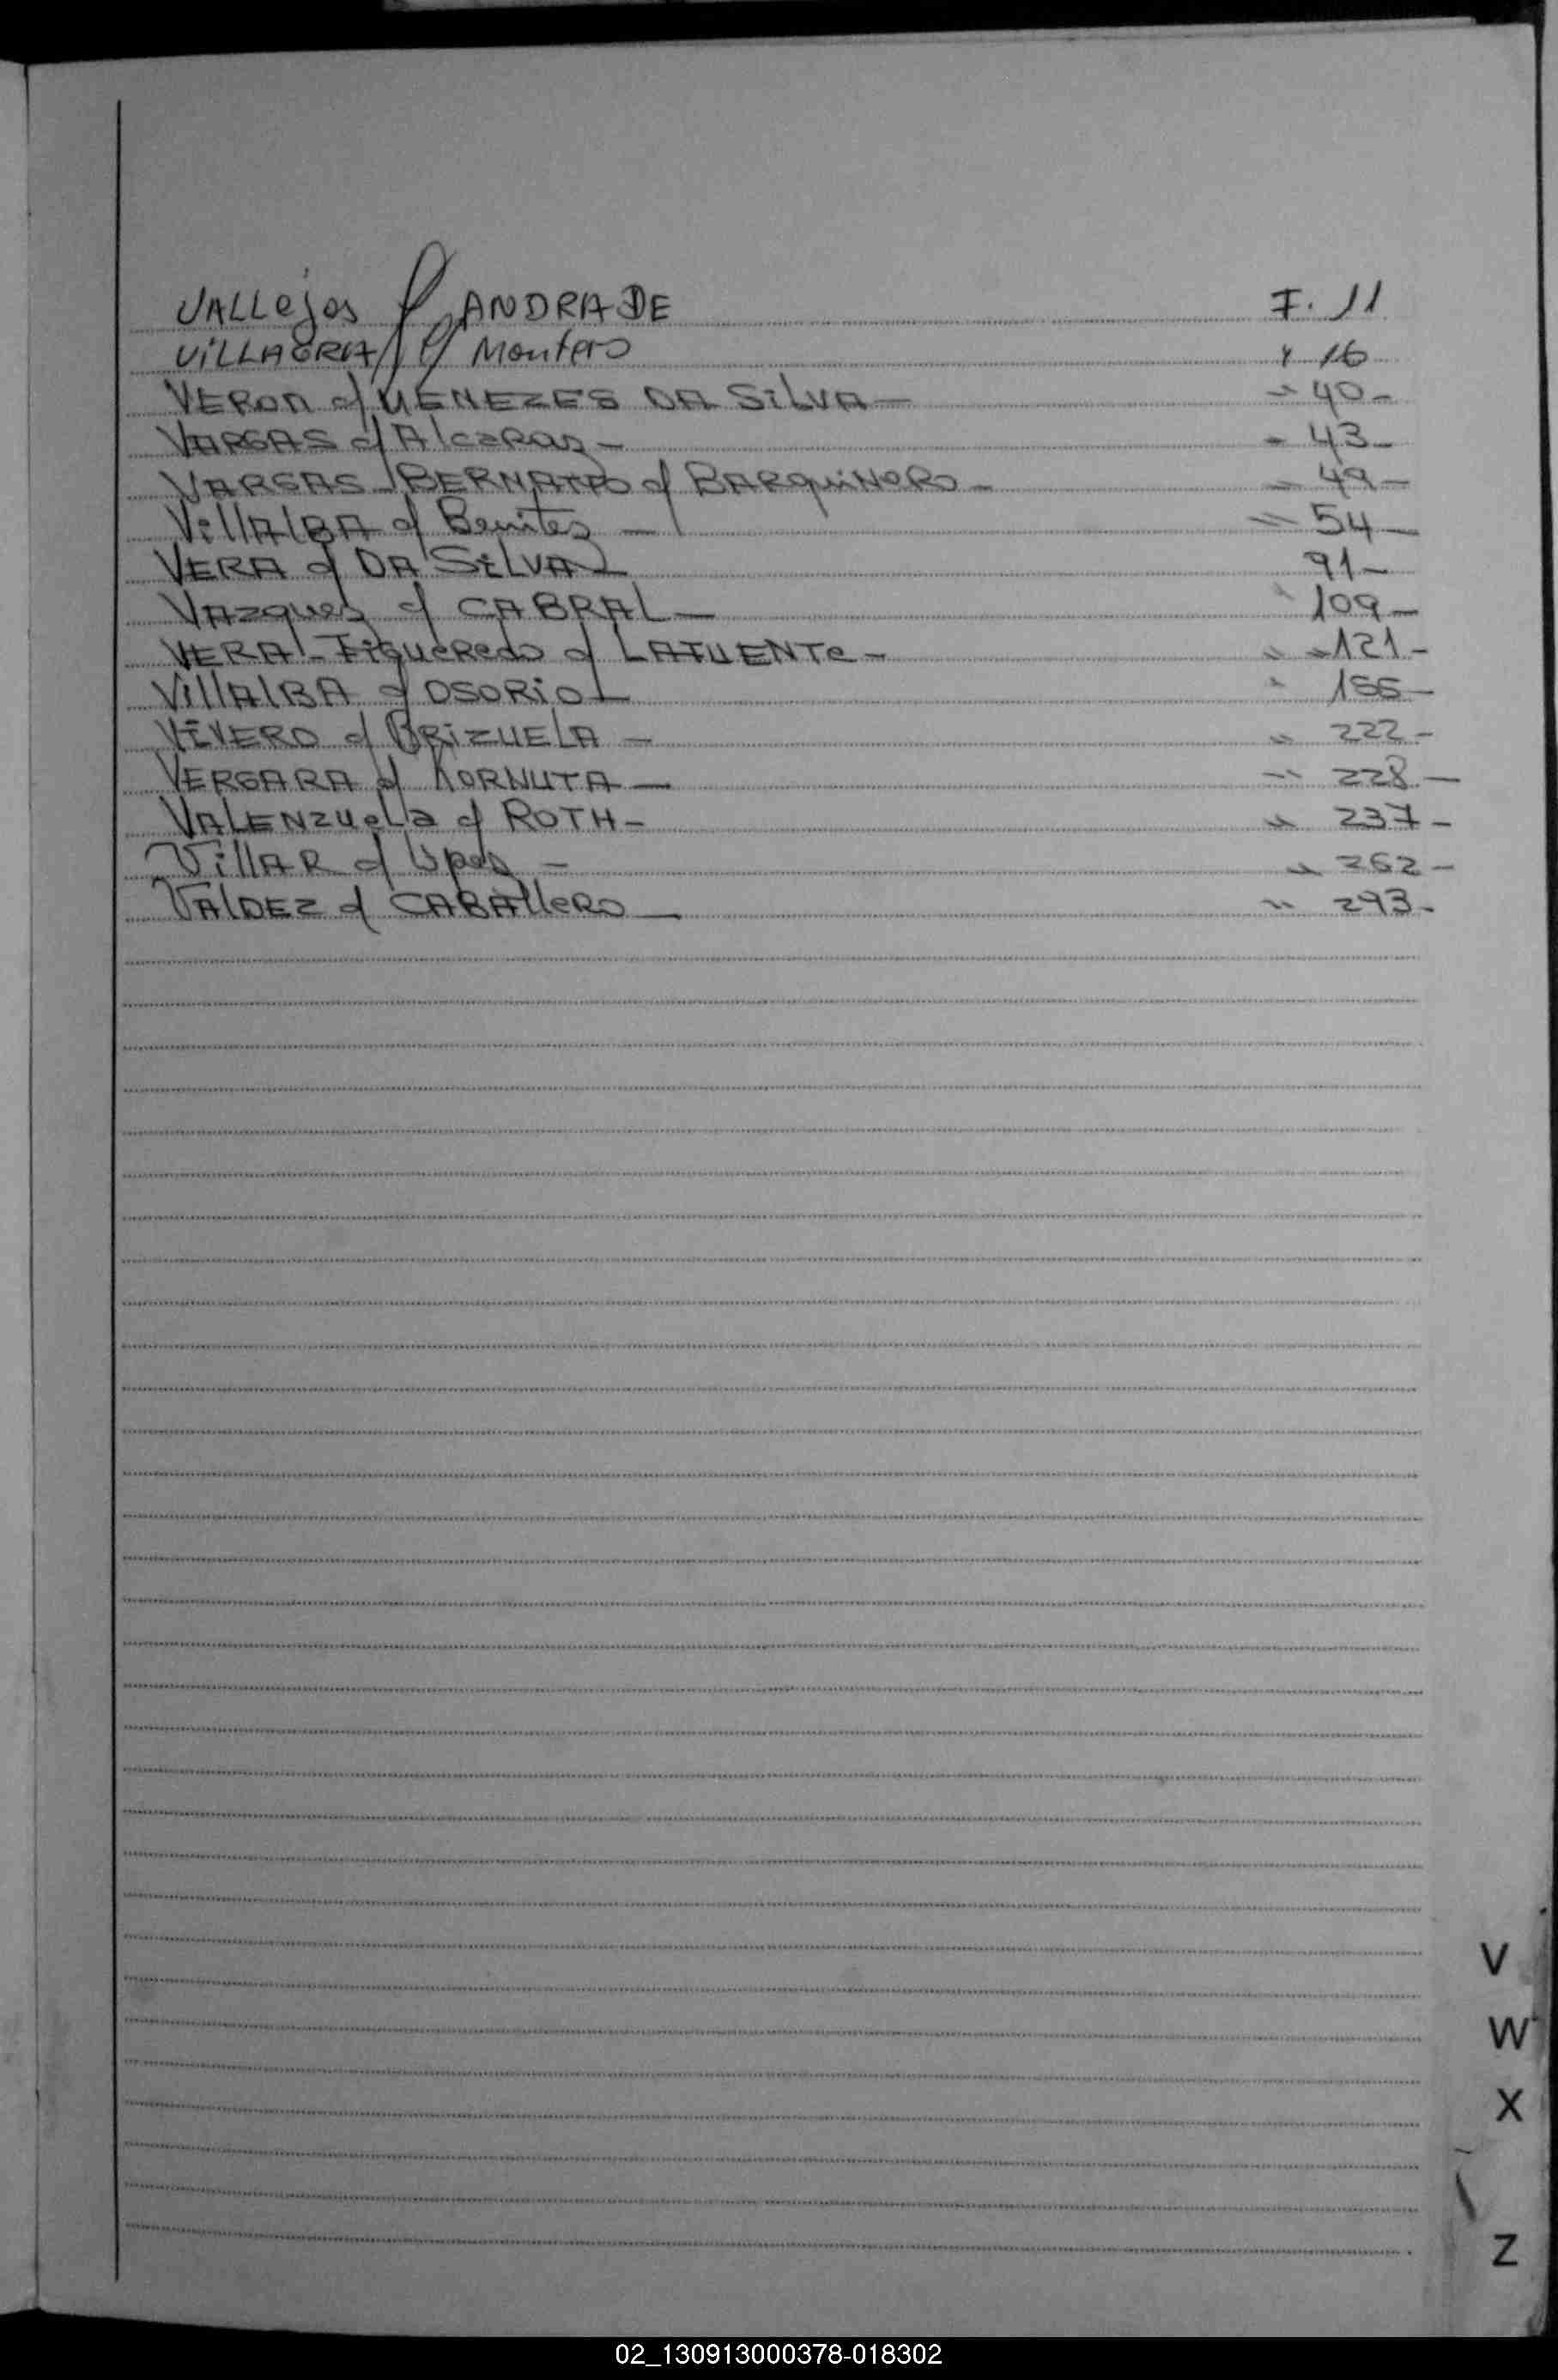 VALLejos c/ ANDRADE F. 11
ViLLAGRA c/ Montero " 16
VERON c/ MENEZES DA SiLVA - " 40 -
VARGAS c/ Alcaraz - " 43 -
VARGAS - BERNARDO c/ BARquiNERO - " 49 -
VillAlBA c/ Benitez - " 54 -
VERA c/ DA SiLVA - 91 -
VAzques c/ CABRAL - " 109 -
VERA - FigueRedo c/ LAFUENTe - " 121 -
VillAlBA c/ OSORiO - " 155 -
ViVERO c/ BRiZUELA - " 222 -
VERGARA c/ KORNUTA - " 228 -
VALENzuella c/ ROTH - " 237 -
VillAR c/ Lopez - " 262 -
VAlDEZ c/ CABAlleRO - " 293 -
V
W
X
Z
02_130913000378-018302